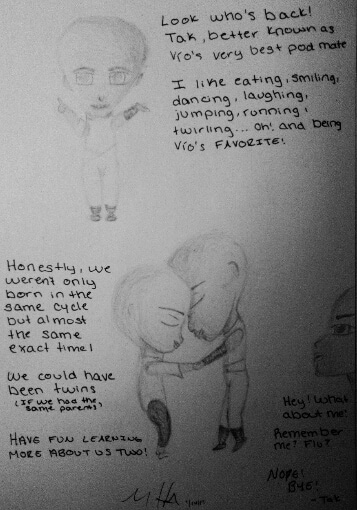 Look who's back!
Tak, better known as
Vio's very best pod mate
I like eating, smiling,
dancing, laughing,
jumping, running,
twirling... oh! and being
Vio's FAVORITE!
Honestly, we
weren't only
born in the
same cycle
but almost
the same
exact time!
We could have
been twins
(IF we had the
same parents)
HAVE FUN LEARNING
MORE ABOUT US TWO!
Hey! What
about me!
Remember
me? Flo?
NOPE!
BYE!
- Tak